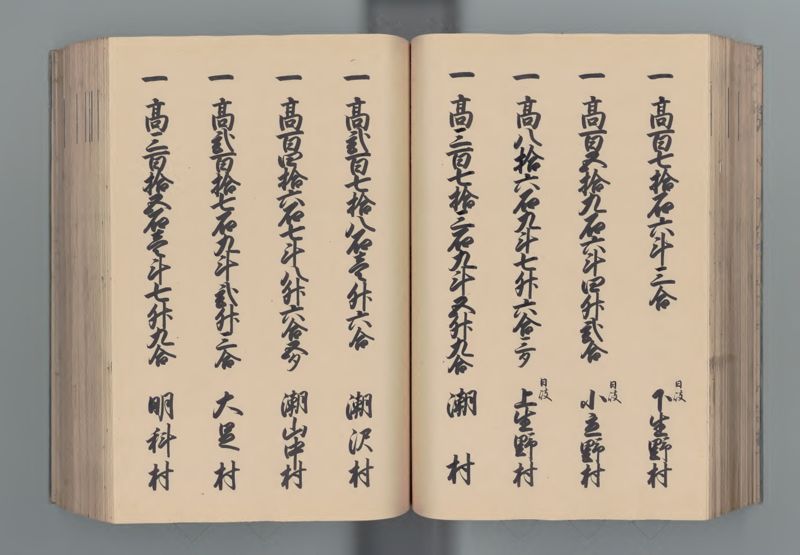 一 高百七拾石六斗三合 日岐 下生野村
一 高百五拾九石六斗四升弐合 日岐 小立野村
一 高八拾六石九斗七升六合三夕 日岐 上生野村
一 高三百七拾三石九斗五升九合 潮村
一 高弐百七拾八石壱升六合 潮沢村
一 高百四拾六石七斗八升六合五夕 潮山中村
一 高弐百拾七石九斗弐升三合 大足村
一 高三百拾五石壱斗七升九合 明科村